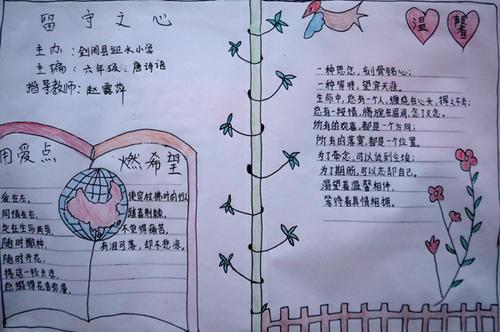 留守之心
主办:剑阁县纽水小学
主编:六年级、唐诗语
指导教师:赵露萍
用爱点
燃希望
爱在左,
同情在右,
走在生命两旁,
随时撒种,
随时开花,
将这一轻长途
点缀得花香弥漫。
使穿枝拂叶的行人
踏着荆棘,
不觉得痛苦,
有泪可落,却不悲凉。
温馨
一种思念,刻骨铭心;
一种等待,望穿天涯。
生命中,总有一个人,缠绕在心头,挥之不去;
总有一段情,萦绕在眉间,忘了又念。
所有的欢喜,都是一个方向;
所有的落寞,都是一个位置。
为了牵念,可以低到尘埃;
为了期盼,可以忘却自己。
渴望着温馨相伴,
等待着真情相拥。